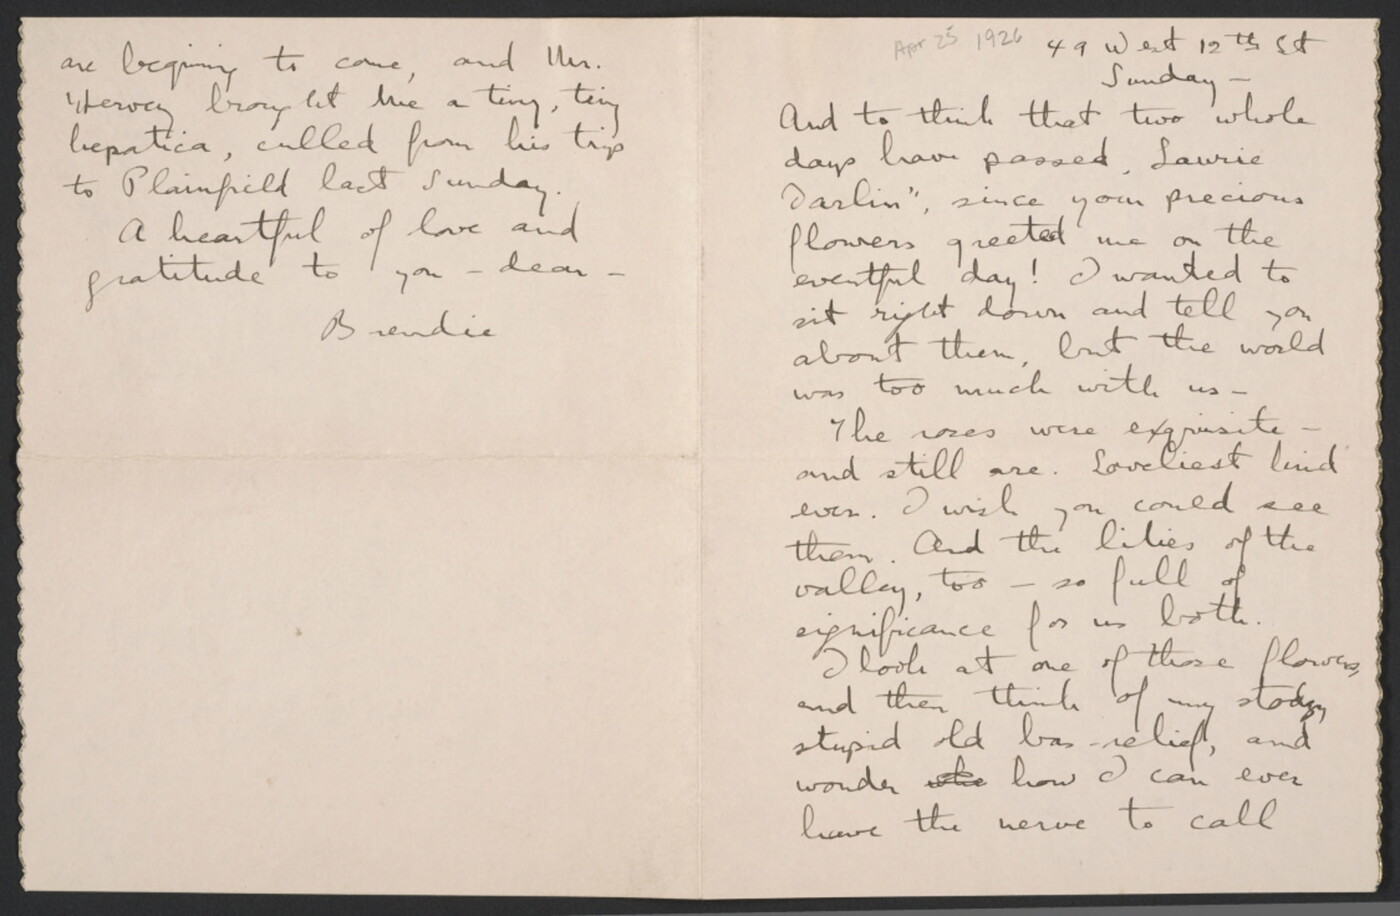 Apr 25 1926
49 West 12th St
Sunday —
And to think that two whole
days have passed, Laurie
Darlin", since your precious
flowers greeted me on the
eventful day! I wanted to
sit right down and tell you
about them, but the world
was too much with us —
The roses were exquisite —
and still are. Loveliest kind
ever. I wish you could see
them. And the lilies of the
valley, too — so full of
significance for us both.
I look at one of those flowers,
and then think of my stodgy
stupid old bas-relief, and
wonder how I can ever
have the nerve to call
are begining to come, and Mr.
Hervey brought me a tiny, tiny
hepatica, culled from his trip
to Plainfield last Sunday.
A heartful of love and
gratitude to you — dear —
Brendie